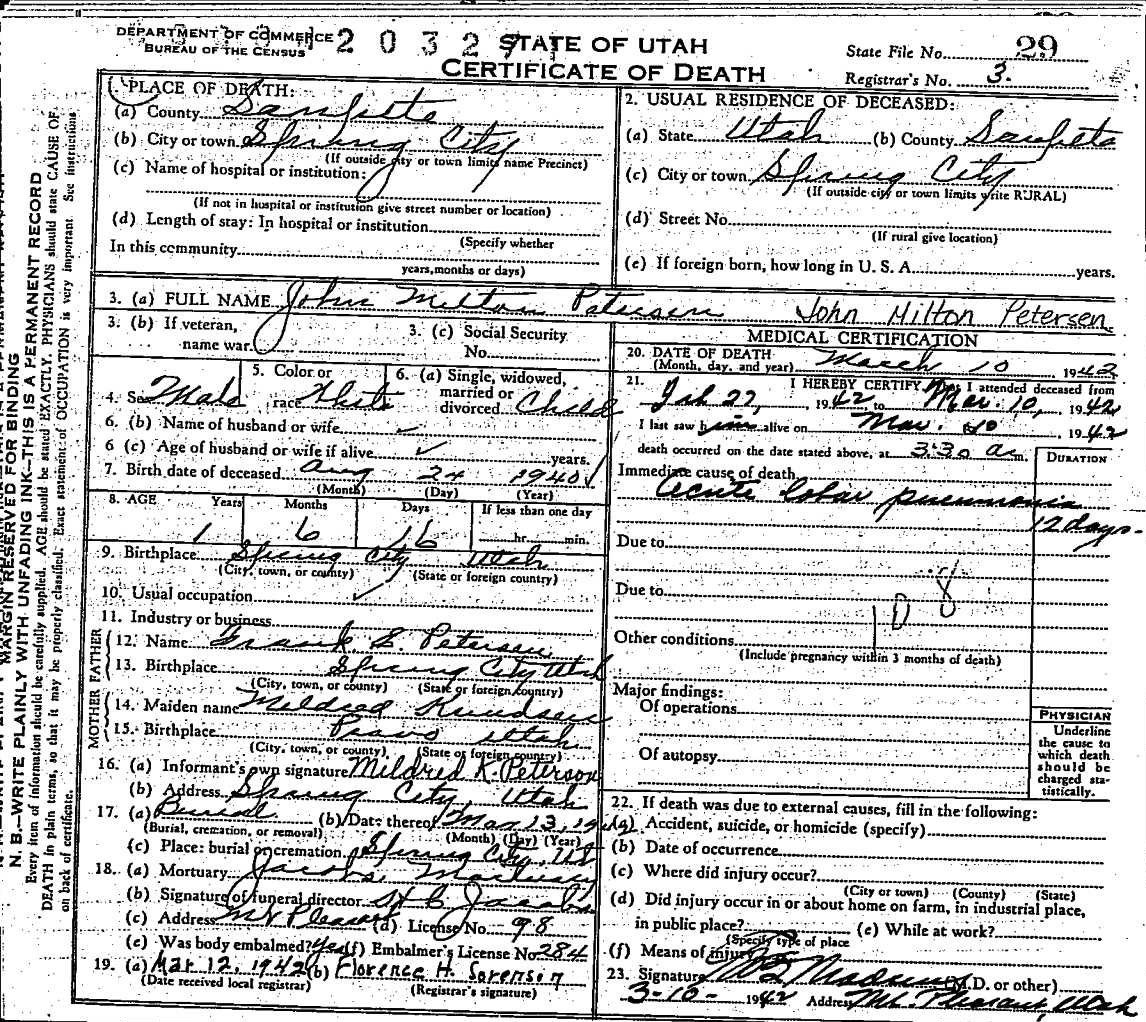 DEPARTMENT OF COMMERCE
BUREAU OF THE CENSUS
2 0 3 2
STATE OF UTAH
CERTIFICATE OF DEATH
State File No. 29
Registrar's No. 3.
1. PLACE OF DEATH:
(a) County Sanpete
(b) City or town Spring City
(If outside city or town limits name Precinct)
(c) Name of hospital or institution:
(If not in hospital or institution give street number or location)
(d) Length of stay: In hospital or institution
(Specify whether
In this community
years, months or days)
2. USUAL RESIDENCE OF DECEASED:
(a) State Utah (b) County Sanpete
(c) City or town Spring City
(If outside city or town limits write RURAL)
(d) Street No.
(If rural give location)
(e) If foreign born, how long in U. S. A. years.
3. (a) FULL NAME John Milton Petersen John Milton Petersen
3. (b) If veteran,
name war.
3. (c) Social Security
No.
4. Sex Male
5. Color or
race White
6. (a) Single, widowed,
married or
divorced Child
6. (b) Name of husband or wife ✓
6 (c) Age of husband or wife if alive ✓ years.
7. Birth date of deceased Aug 24 1940
(Month) (Day) (Year)
8. AGE Years Months Days If less than one day
1 6 16 hr. min.
9. Birthplace Spring City Utah
(City, town, or county) (State or foreign country)
10. Usual occupation ✓
11. Industry or business
FATHER
12. Name Frank E. Petersen
13. Birthplace Spring City Utah
(City, town, or county) (State or foreign country)
MOTHER
14. Maiden name Mildred Knudsen
15. Birthplace Provo Utah
(City, town, or county) (State or foreign country)
16. (a) Informant's own signature Mildred K. Peterson
(b) Address Spring City, Utah
17. (a) Burial (b) Date thereof Mar 13, 1942
(Burial, cremation, or removal) (Month) (Day) (Year)
(c) Place: burial or cremation Spring City, Ut
18. (a) Mortuary Jacobs Mortuary
(b) Signature of funeral director H C Jacobs
(c) Address Mt Pleasant (d) License No. 98
(e) Was body embalmed? Yes (f) Embalmer's License No. 284
19. (a) Mar 12, 1942 (b) Florence H. Sorenson
(Date received local registrar) (Registrar's signature)
MEDICAL CERTIFICATION
20. DATE OF DEATH March 10 1942
(Month, day, and year)
21. I HEREBY CERTIFY, That I attended deceased from
Feb 27, 1942 to Mar. 10, 1942
I last saw him alive on Mar. 10 1942
death occurred on the date stated above, at 3:30 a m.
DURATION
Immediate cause of death
Acute lobar pneumonia
12 days
Due to
Due to
108
Other conditions
(Include pregnancy within 3 months of death)
Major findings:
Of operations
Of autopsy
PHYSICIAN
Underline
the cause to
which death
should be
charged sta-
tistically.
22. If death was due to external causes, fill in the following:
(a) Accident, suicide, or homicide (specify)
(b) Date of occurrence
(c) Where did injury occur?
(City or town) (County) (State)
(d) Did injury occur in or about home on farm, in industrial place,
in public place? (e) While at work?
(Specify type of place
(f) Means of injury
23. Signature (M.D. or other)
3-10- 1942 Address Mt. Pleasant, Utah
MARGIN RESERVED FOR BINDING
N. B.—WRITE PLAINLY WITH UNFADING INK—THIS IS A PERMANENT RECORD
Every item of information should be carefully supplied. AGE should be stated EXACTLY. PHYSICIANS should state CAUSE OF
DEATH in plain terms, so that it may be properly classified. Exact statement of OCCUPATION is very important. See instructions
on back of certificate.